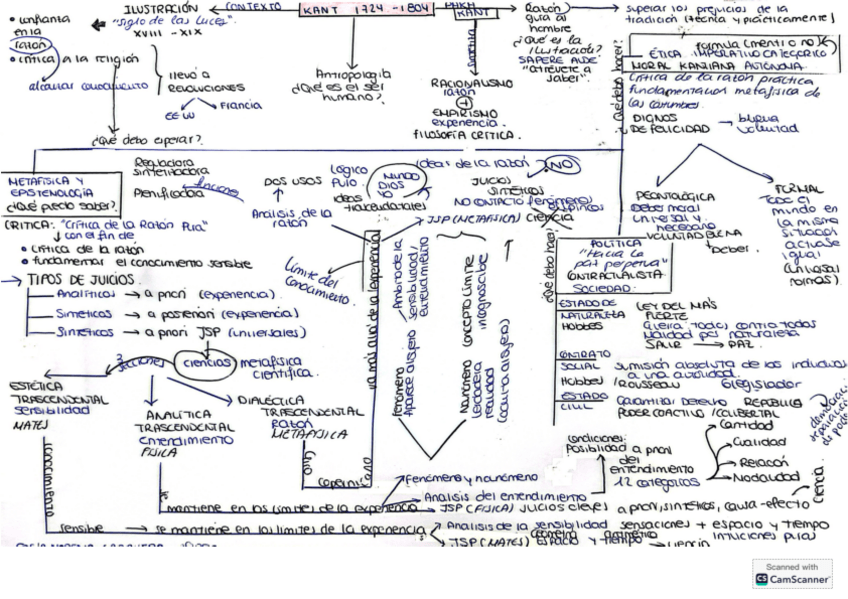 ILUSTRACIÓN
"siglo de las luces"
XVIII - XIX
CONTEXTO
KANT 1724 - 1804
KANT
• confianza
en la
razón
• crítica a la religión
alcanzar conocimiento
llevó a
REVOLUCIONES
EEUU
Francia
Antropología
¿Qué es el ser
humano?
RACIONALISMO
razón
+
EMPIRISMO
experiencia
FILOSOFÍA CRÍTICA.
Razón
guía al
hombre
¿Qué es la
ilustración?
SAPERE AUDE
"atrévete a
saber".
superar los prejuicios de la
tradición (técnica y prácticamente)
¿Qué debo hacer?
formula (mentir o no)
ÉTICA IMPERATIVO CATEGÓRICO
MORAL KANTIANA AUTONOMA
Crítica de la razón práctica
fundamentación metafísica de
las costumbres
DIGNOS
DE FELICIDAD
buena
voluntad
¿Qué debo esperar?
METAFÍSICA Y
EPISTEMOLOGÍA
¿Qué puedo saber?
Reguladora
Planificadora
funciones
DOS USOS
Análisis de la
razón
Lógico
Puro
Ideas
trascendentales
MUNDO
DIOS
YO
Ideas de la razón
NO
JUICIOS
SINTÉTICOS
NO CONTACTO fenómenos
empíricos
JSP (METAFÍSICA) ciencia
CRITICA: "Crítica de la Razón Pura"
con el fin de
• crítica de la razón
• fundamentar el conocimiento sensible
Límite del
conocimiento
TIPOS DE JUICIOS.
Analíticos → a priori (experiencia)
Sintéticos → a posteriori (experiencia)
Sintéticos → a priori JSP (universales)
3 secciones
ciencias
metafísica
científica.
ESTÉTICA
TRASCENDENTAL
sensibilidad
MATES
ANALÍTICA
TRASCENDENTAL
entendimiento
FÍSICA
DIALÉCTICA
TRASCENDENTAL
RAZÓN
METAFÍSICA
Giro
Copernicano
va más allá de la experiencia
Ámbito de la
sensibilidad/
entendimiento
Concepto límite
incognoscible
DEONTOLÓGICA
Deber moral
universal y
necesario
VOLUNTAD BUENA
Deber.
FORMAL
Todo el
mundo en
la misma
situación
actuase
igual
(universal
normas)
¿Qué debo hacer?
POLÍTICA
"Hacia la
paz perpetua"
CONTRACTUALISTA
SOCIEDAD.
ESTADO DE
NATURALEZA
Hobbes
LEY DEL MÁS
FUERTE
Guerra todos contra todos
Maldad por naturaleza
SALIR → PAZ
CONTRATO
SOCIAL
Hobbes / Rousseau
sumisión absoluta de los individuos
a una autoridad.
legislador
ESTADO
CIVIL
Garantizar Derecho
REPÚBLICA
PODER COACTIVO / LIBERTAD
Condiciones:
posibilidad a priori
del
entendimiento
12 categorías
Cantidad
Cualidad
Relación
Modalidad
Fenómeno y noúmeno
Análisis del entendimiento
mantiene en los límites de la experiencia
JSP (FÍSICA) JUICIOS claves a priori, sintéticos, causa-efecto
ciencia
conocimiento
sensible → se mantiene en los límites de la experiencia
Análisis de la sensibilidad sensaciones + espacio y tiempo
intuiciones puras
JSP (MATES) espacio y tiempo → ciencia
geometría aritmética
Scanned with
CS CamScanner